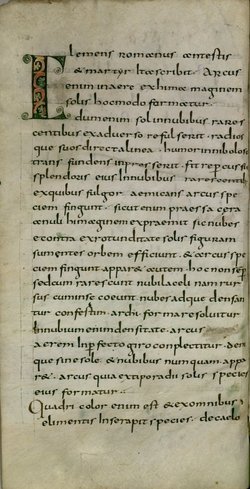 Clemens romanus antestis
& martyr ita scribit . Arcus
enim in aere ex himaginem
solis hoc modo formatur .
Dum enim sol in nubibus rares
centibus ex adverso refulserit . radios
que suos directa linea . humori nuboloso
transfundens inpresserit . fit repercussio
splendoris eius In nubibus rarescentib
ex quibus fulgor aemicans arcus spe
ciem fingunt . sicut enim praessa cera
anuli himaginem expraemit sic nubes
e contra ex rotunditate solis figuram
sumentes orbem efficiunt & arcus spe
ciem fingunt appar& autem hoc non semper
sed cum rarescunt nubila caeli nam rur
sus cum in se coeunt nubes adque densan
tur confestim arcu forma resoluitur
In nubium enim densitate . arcus
aerem Inperfecto giro conplectitur . den
que sine sole & nubibus numquam appa
r& . arcus quia ex tiporadii solis species
eius formatur .
Quadri color enim est & ex omnibus
elimentis In se rapit species . de caelo